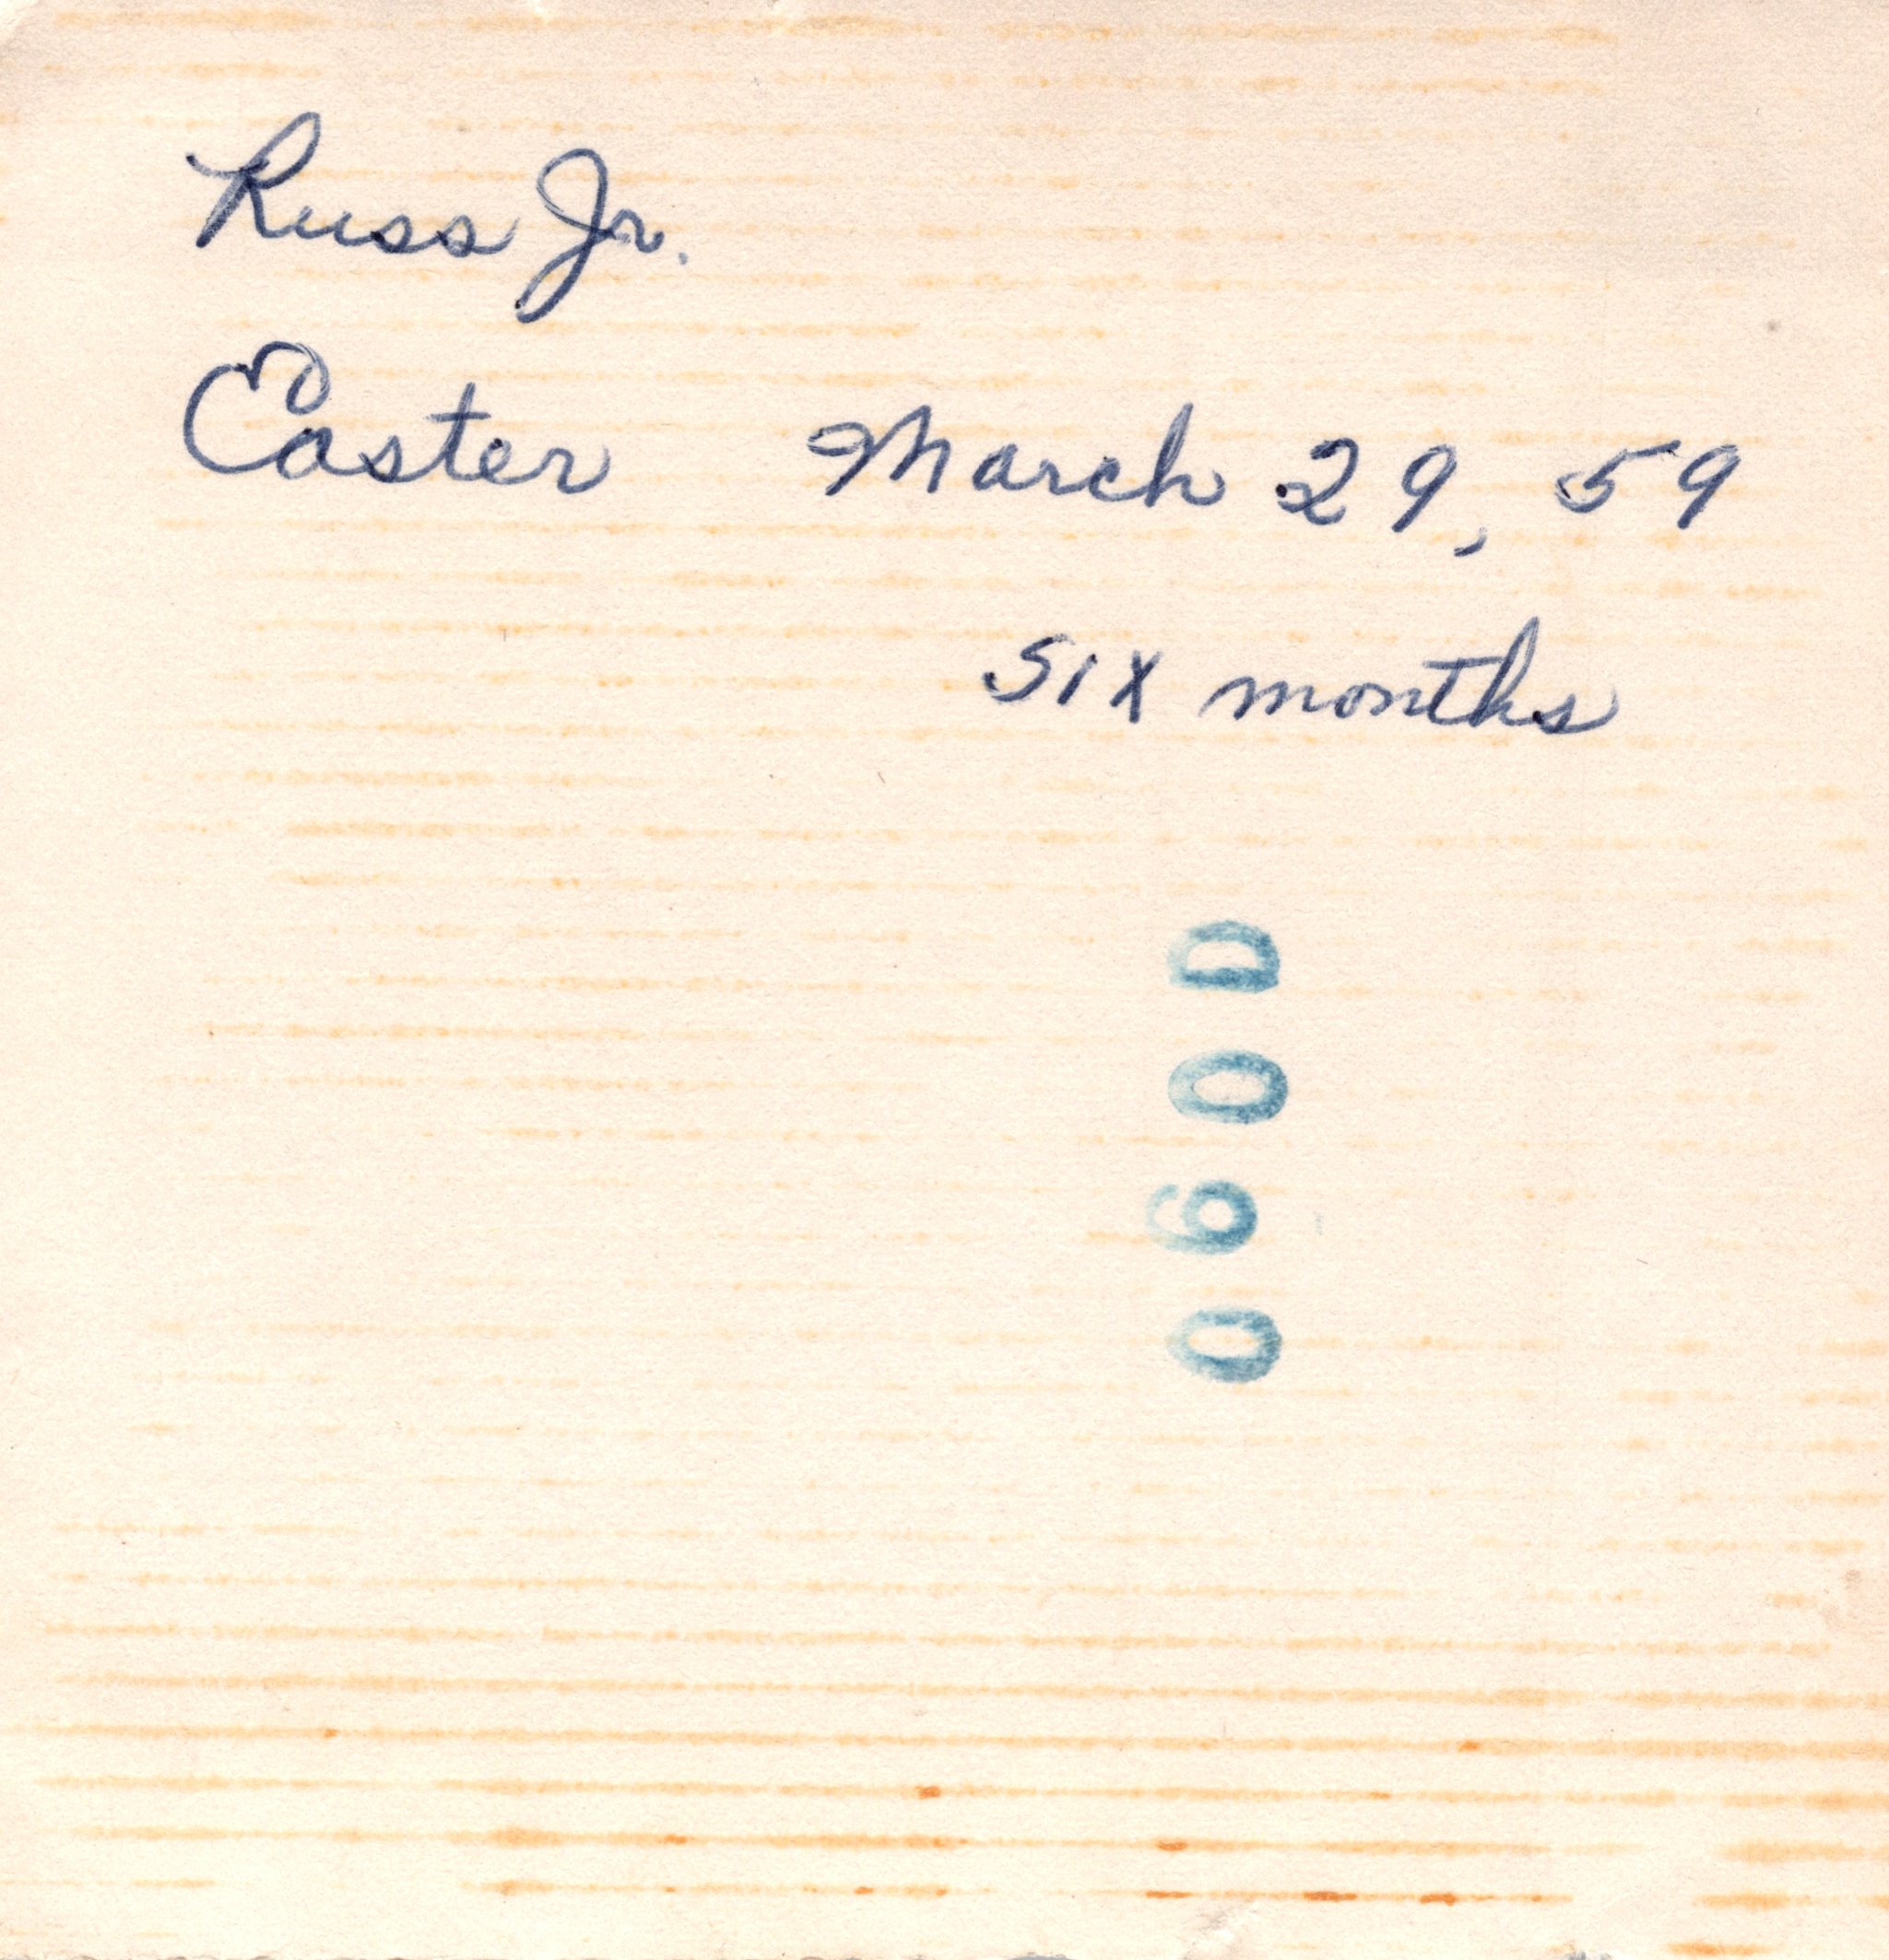 Russ Jr.
Easter March 29, 59
six months
060D